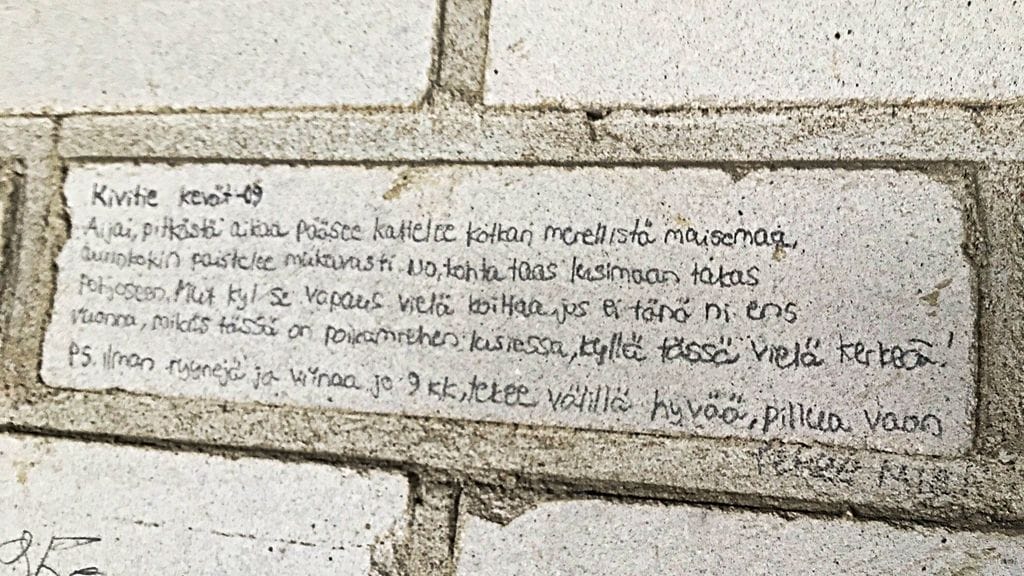 Kivitie kevät-09
Aijai, pitkästä aikaa pääsee kattelee kotkan merellistä maisemaa,
aurinkokin paistelee mukavasti. No, kohta taas lusimaan takas
Pohjoseen. Mut kyl se vapaus vielä koittaa, jos ei tänä ni ens
vuonna, mikäs tässä on poikamiehen lusiessa, kyllä tässä vielä kerkeä!
PS. ilman ryynejä ja viinaa jo 9 kk, tekee välillä hyvää, pillua vaan
tekee